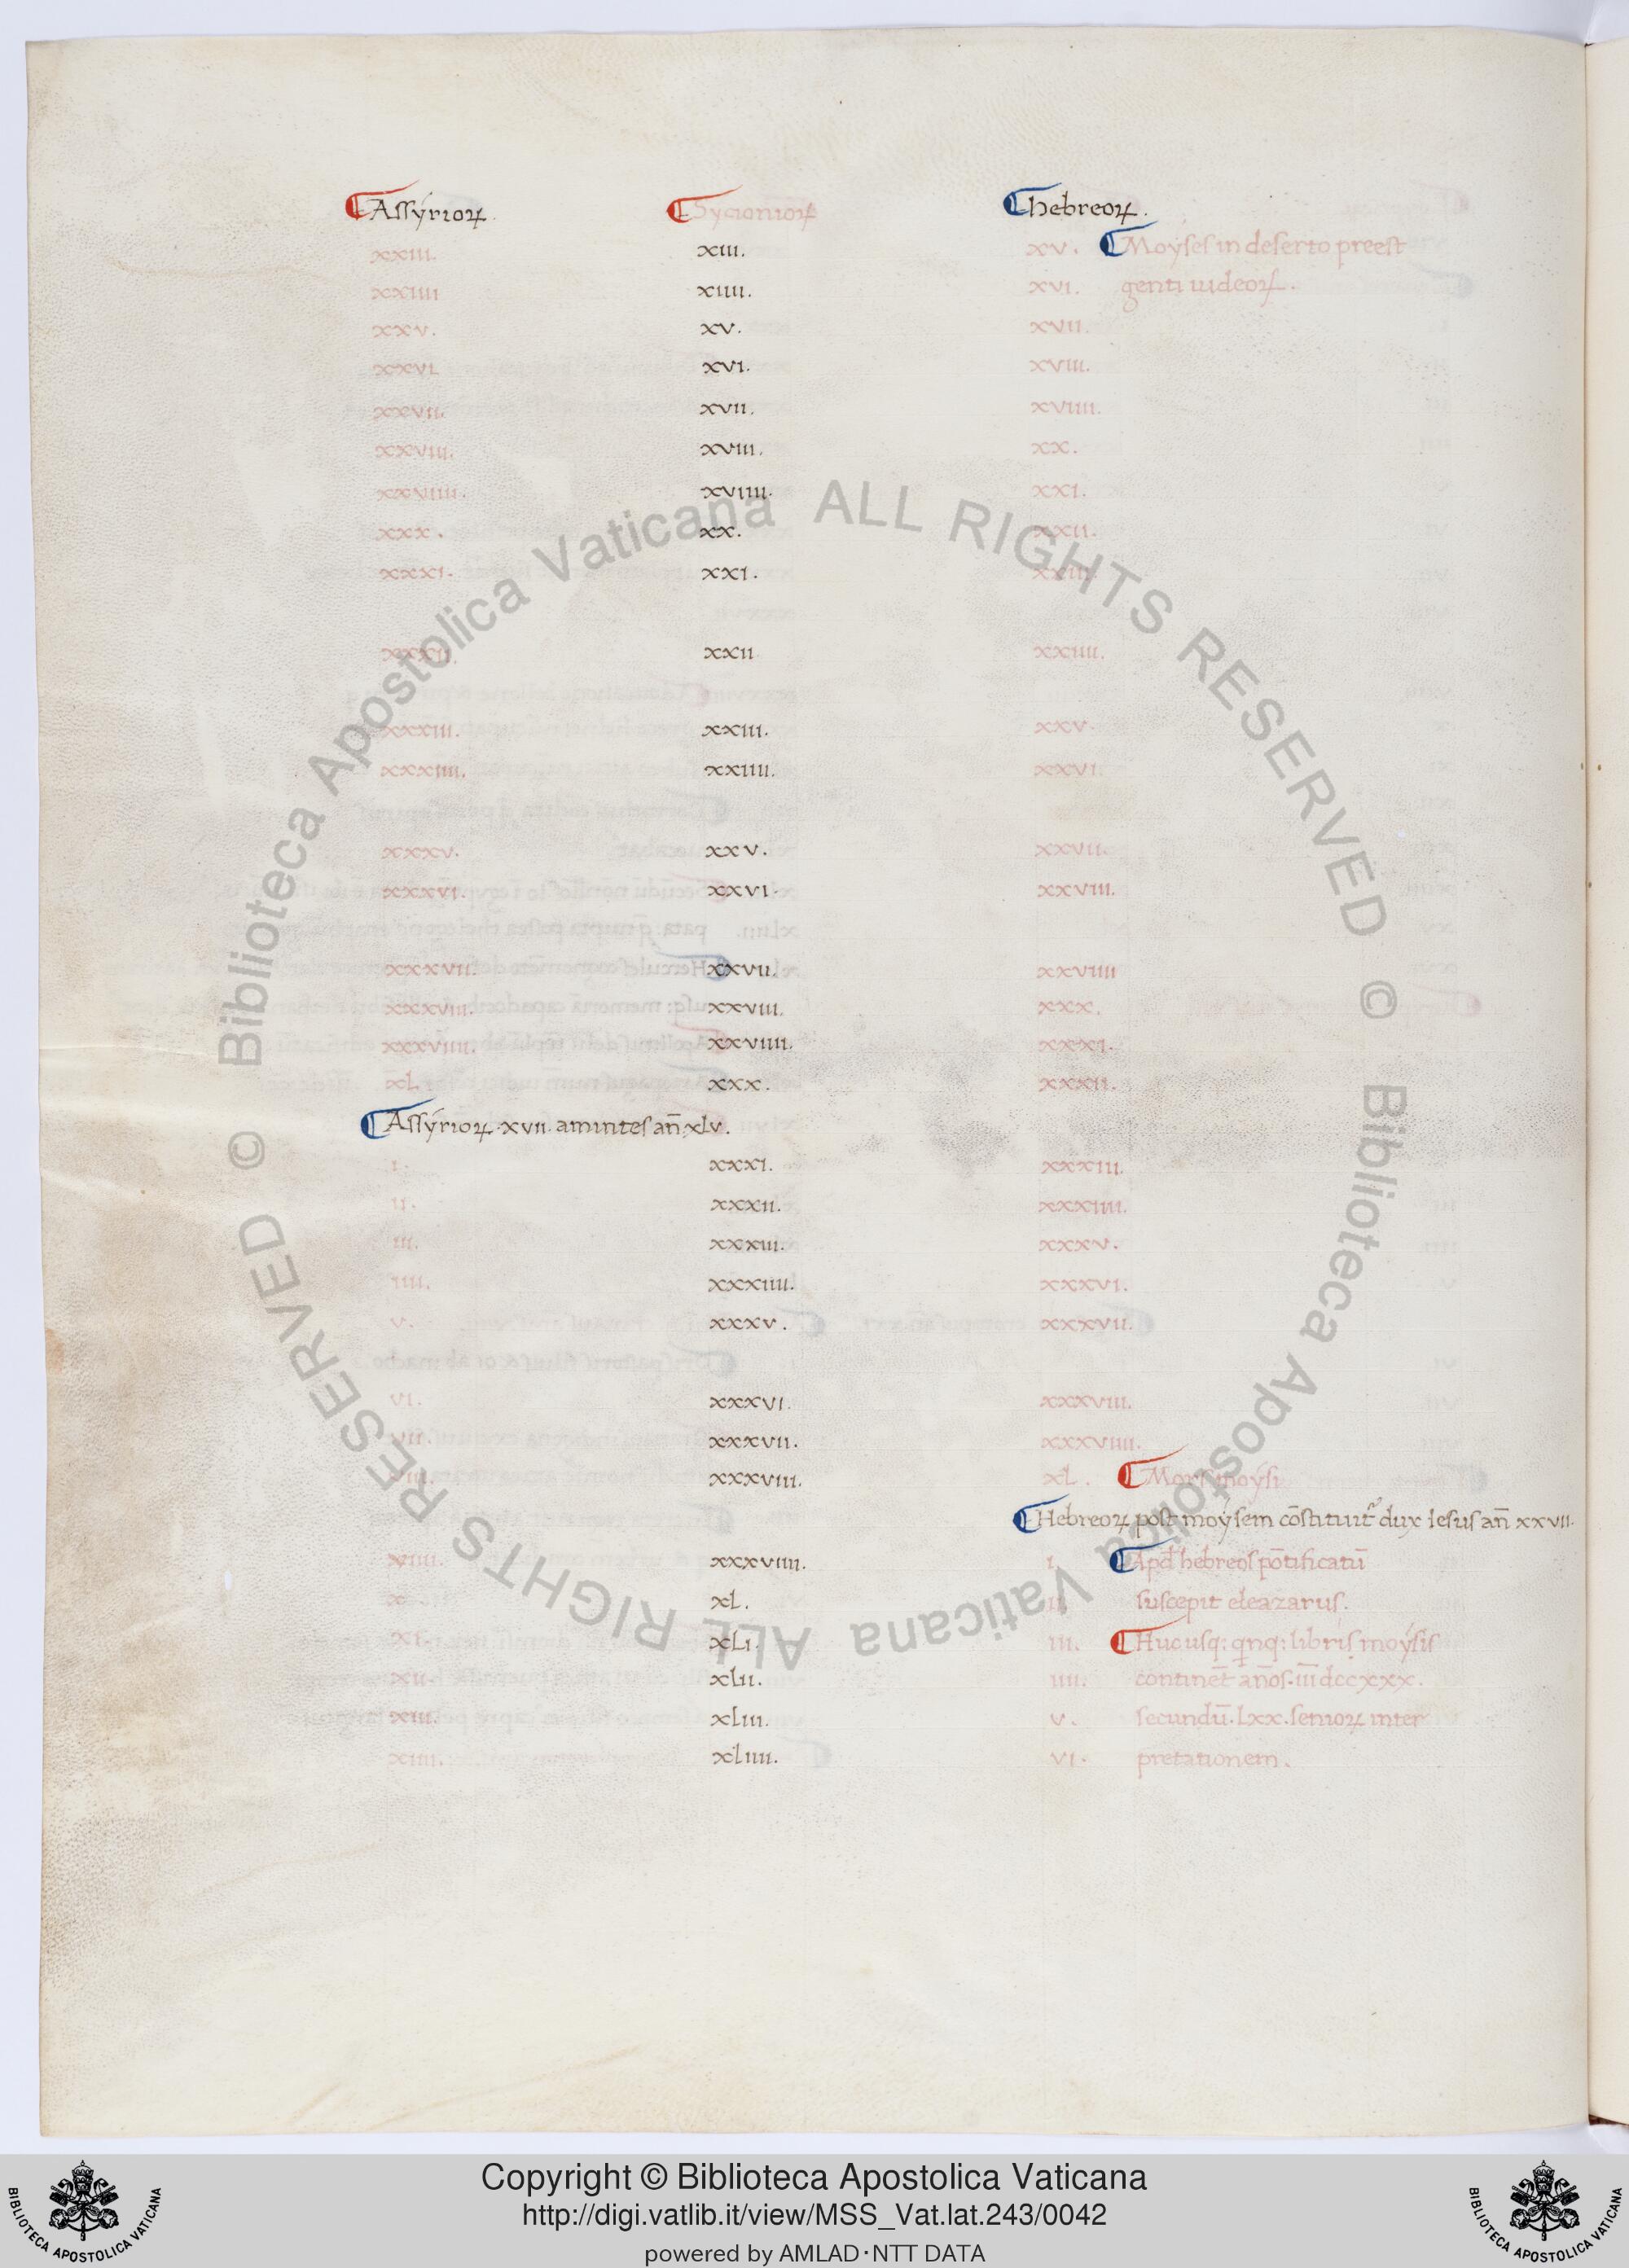 Assyrioꝝ. Sycionioꝝ hebreoꝝ.
xxiii. xiii. xv. Moyses in deserto preest
xxiiii xiiii. xvi. genti iudeoꝝ.
xxv. xv. xvii.
xxvi. xvi. xviii.
xxvii. xvii. xviiii.
xxviii. xviii. xx.
xxviiii. xviiii. xxi.
xxx. xx. xxii.
xxxi. xxi. xxiii.
xxxii. xxii xxiiii.
xxxiii. xxiii. xxv.
xxxiiii. xxiiii. xxvi.
xxxv. xxv. xxvii.
xxxvi. xxvi. xxviii.
xxxvii. xxvii. xxviiii
xxxviii. xxviii. xxx.
xxxviiii. xxviiii. xxxi.
xl. xxx. xxxii.
Assyrioꝝ.xvii.amintes an̄.xlv.
i. xxxi. xxxiii.
ii. xxxii. xxxiiii.
iii. xxxiii. xxxv.
iiii. xxxiiii. xxxvi.
v. xxxv. xxxvii.
vi. xxxvi. xxxviii.
vii. xxxvii. xxxviiii.
viii. xxxviii. xl. Mors moysi
Hebreoꝝ post moysem cōstituit᷑ dux iesus an̄ xxvii.
viiii. xxxviiii. i. Apd̄ hebreos pōtificatū
x xl. ii. suscepit eleazarus.
xi. xli. iii. Hucusq; qnq; libris moysis
xii. xlii. iiii. continēt an̄os.iii̅ dccxxx.
xiii. xliii. v. secundū.lxx.senioꝝ inter
xiiii. xliiii. vi. pretationem.
© Biblioteca Apostolica Vaticana ALL RIGHTS RESERVED
© Biblioteca Apostolica Vaticana ALL RIGHTS RESERVED
Copyright © Biblioteca Apostolica Vaticana
http://digi.vatlib.it/view/MSS_Vat.lat.243/0042
powered by AMLAD·NTT DATA
BIBLIOTECA APOSTOLICA VATICANA
BIBLIOTECA APOSTOLICA VATICANA